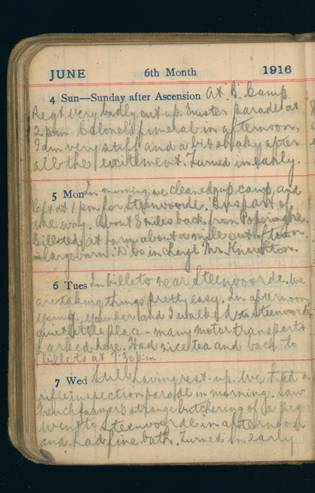 JUNE 6th Month 1916
4 Sun—Sunday after Ascension At B. Camp
Regt very badly cut up. Muster parade at
2 pm. Colonel's funeral in afternoon.
I am very stiff and a bit shaky after
all the excitement. Turned in early.
5 Mon In morning we cleaned up camp, and
left at 1 pm for Steenvoorde. Bus part of
the way. About 8 miles back from Poperinghe.
Billeted at farm about a mile out of town
in large barn. D Co in charge Mr.
6 Tues In billets near Steenvoorde. We
are taking things pretty easy. In afternoon
Young, and I walked to Steenvoorde
quiet little place – many motor transports
parked here. Had nice tea and back to
billets at 7.30 pm
7 Wed Still having rest-up. We had a
rifle inspection parade in morning. Saw
French farmer's strange butchering of a pig
Went to Steenvoorde in afternoon
and had fine bath. Turned in early